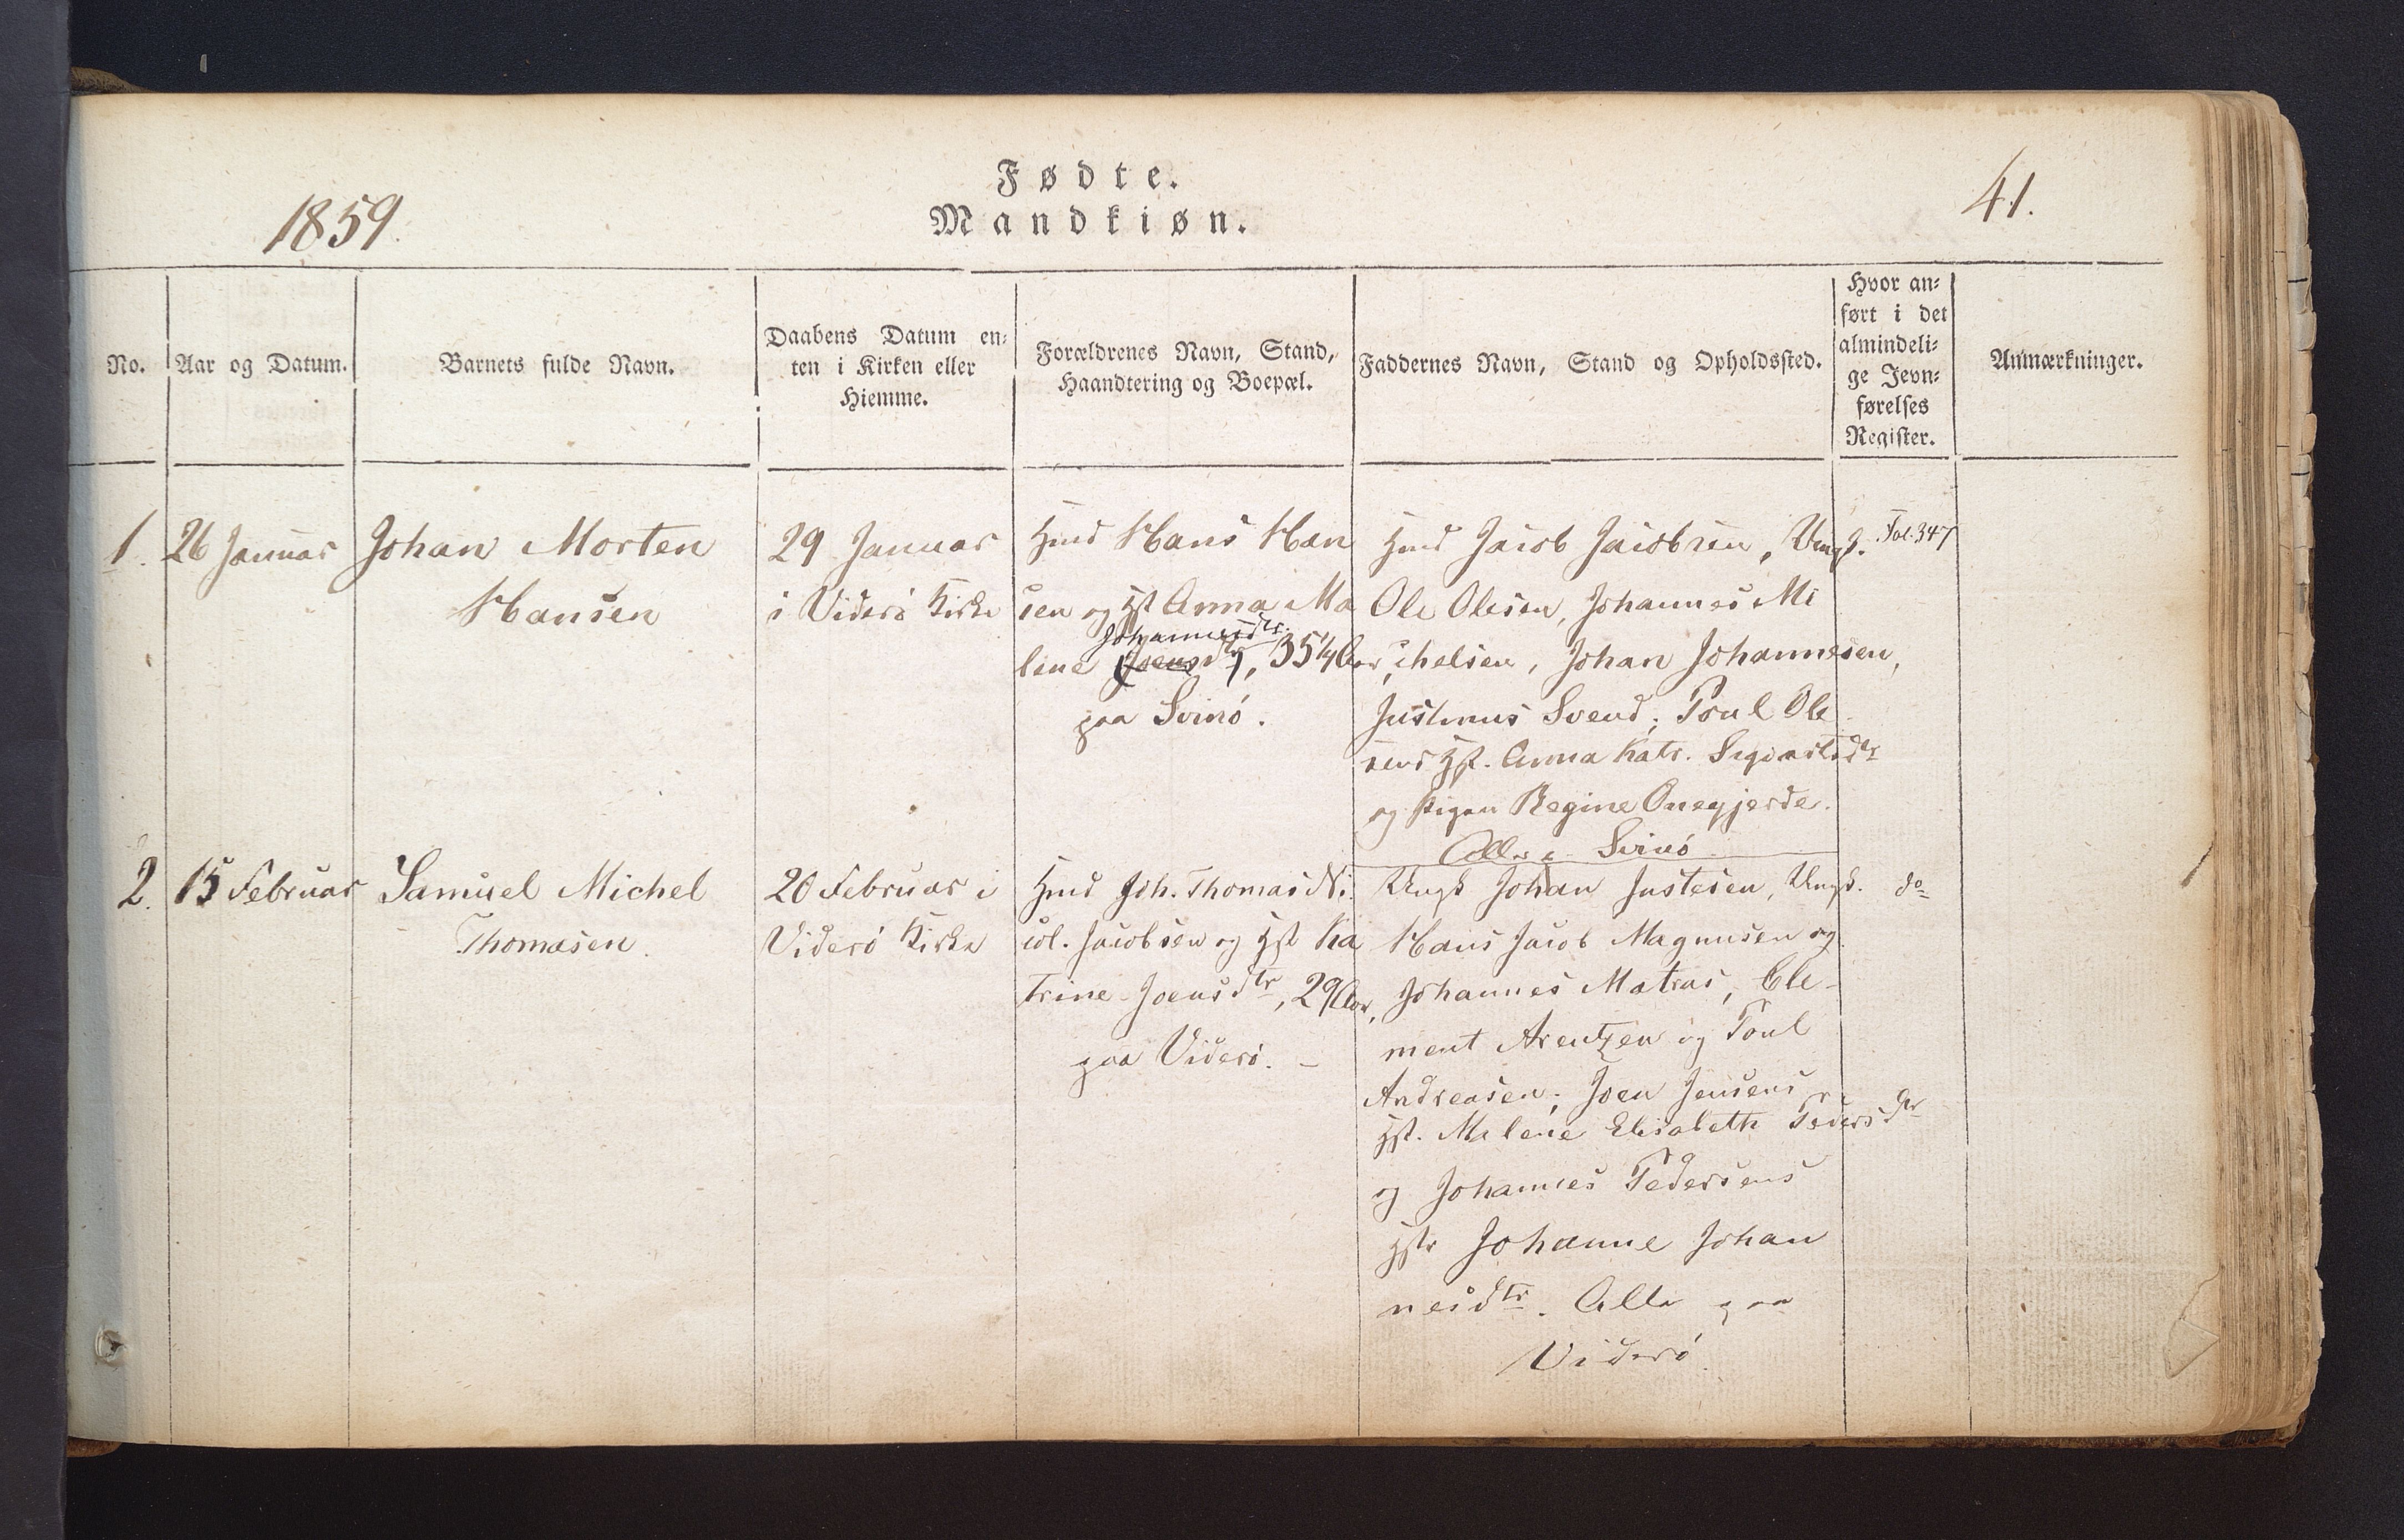 Fødte.
Mandkiøn.
1859.
41.
No.
Aar og Datum.
Barnets fulde Navn.
Daabens Datum en-
ten i Kirken eller
Hiemme.
Forældrenes Navn, Stand,
Haandtering og Boepæl.
Faddernes Navn, Stand og Opholdssted.
Hvor an-
ført i det
almindeli-
ge Jevn-
førelses
Register.
Anmærkninger.
1.
26 Januar
Johan Morten
Hansen
29 Januar
i Viderö Kirke
Hmd Hans Han
sen og Hst Anna Ma
Johannesdtr.
lene Joensdtr, 35 1/4 Aar,
paa Svinö.
Hmd Jacob Jacobsen, Ungk.
Ole Olesen, Johannes Mi
chelsen, Johan Johannesen,
Justinus Svend; Poul Ole
sens Hst. Anna Katr. Sigvartsdtr
og Pigen Regine Ouegjerde.
Alle Svinö
Fol. 347
2.
15 Februar
Samuel Michel
Thomasen.
20 Februar i
Viderö Kirke
Hmd Joh. Thomas Ni
col. Jacobsen og Hst Ka
trine Joensdtr, 29 Aar,
paa Viderö. -
Ungk Johan Justesen, Ungk.
Hans Jacob Magnusen og
Johannes Matras, Cle-
ment Arentzen og Poul
Andreasen; Joen Jensens
Hst. Malene Elisabeth Pedersdtr
og Johannes Pedersens
Hstr Johanne Johan
nesdtr. Alle paa
Viderö.
do